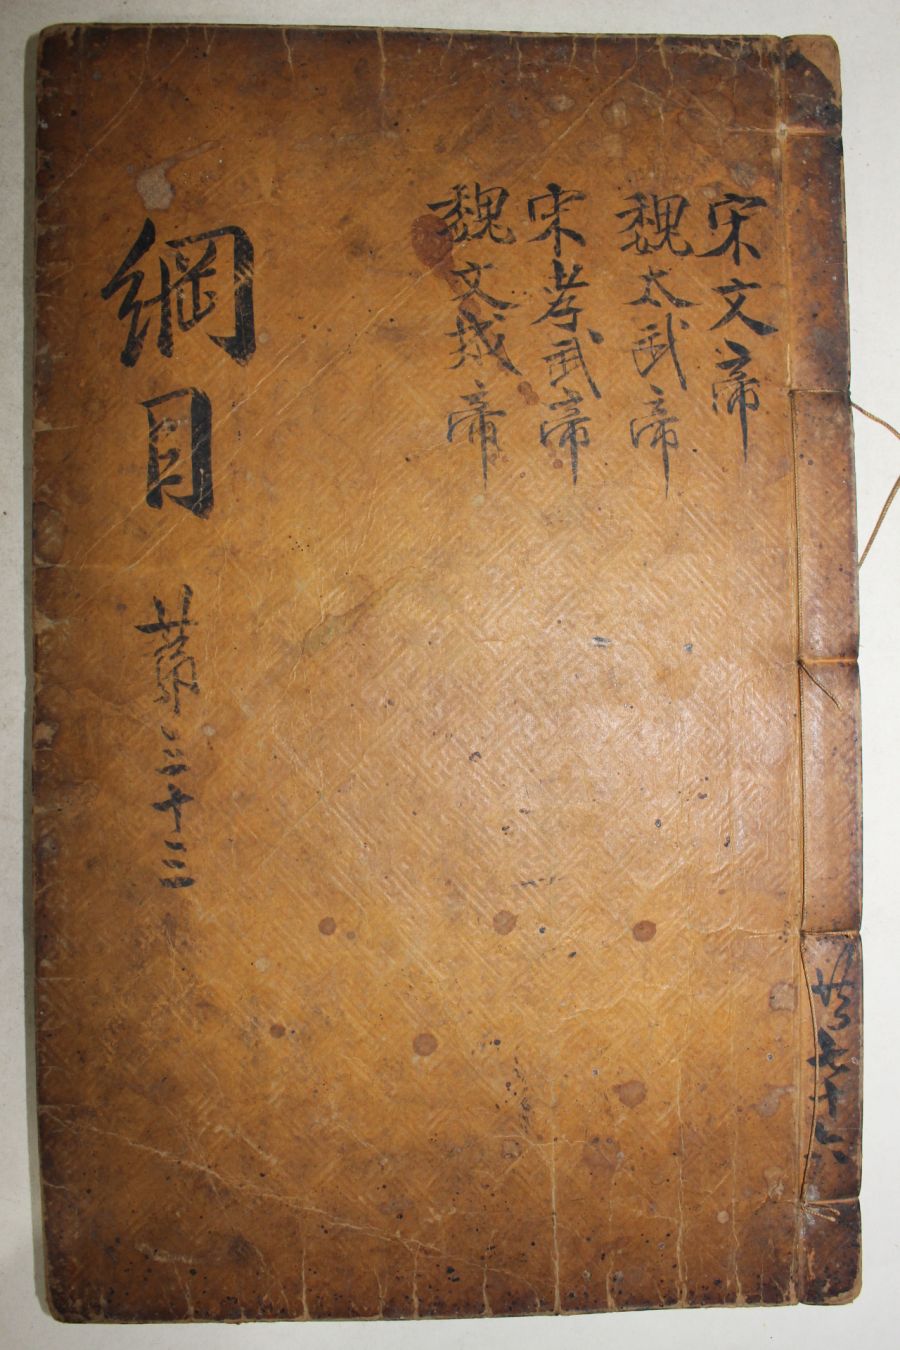 宋文帝
魏太武帝
宋孝武帝
魏文成帝
綱目
苐三十三